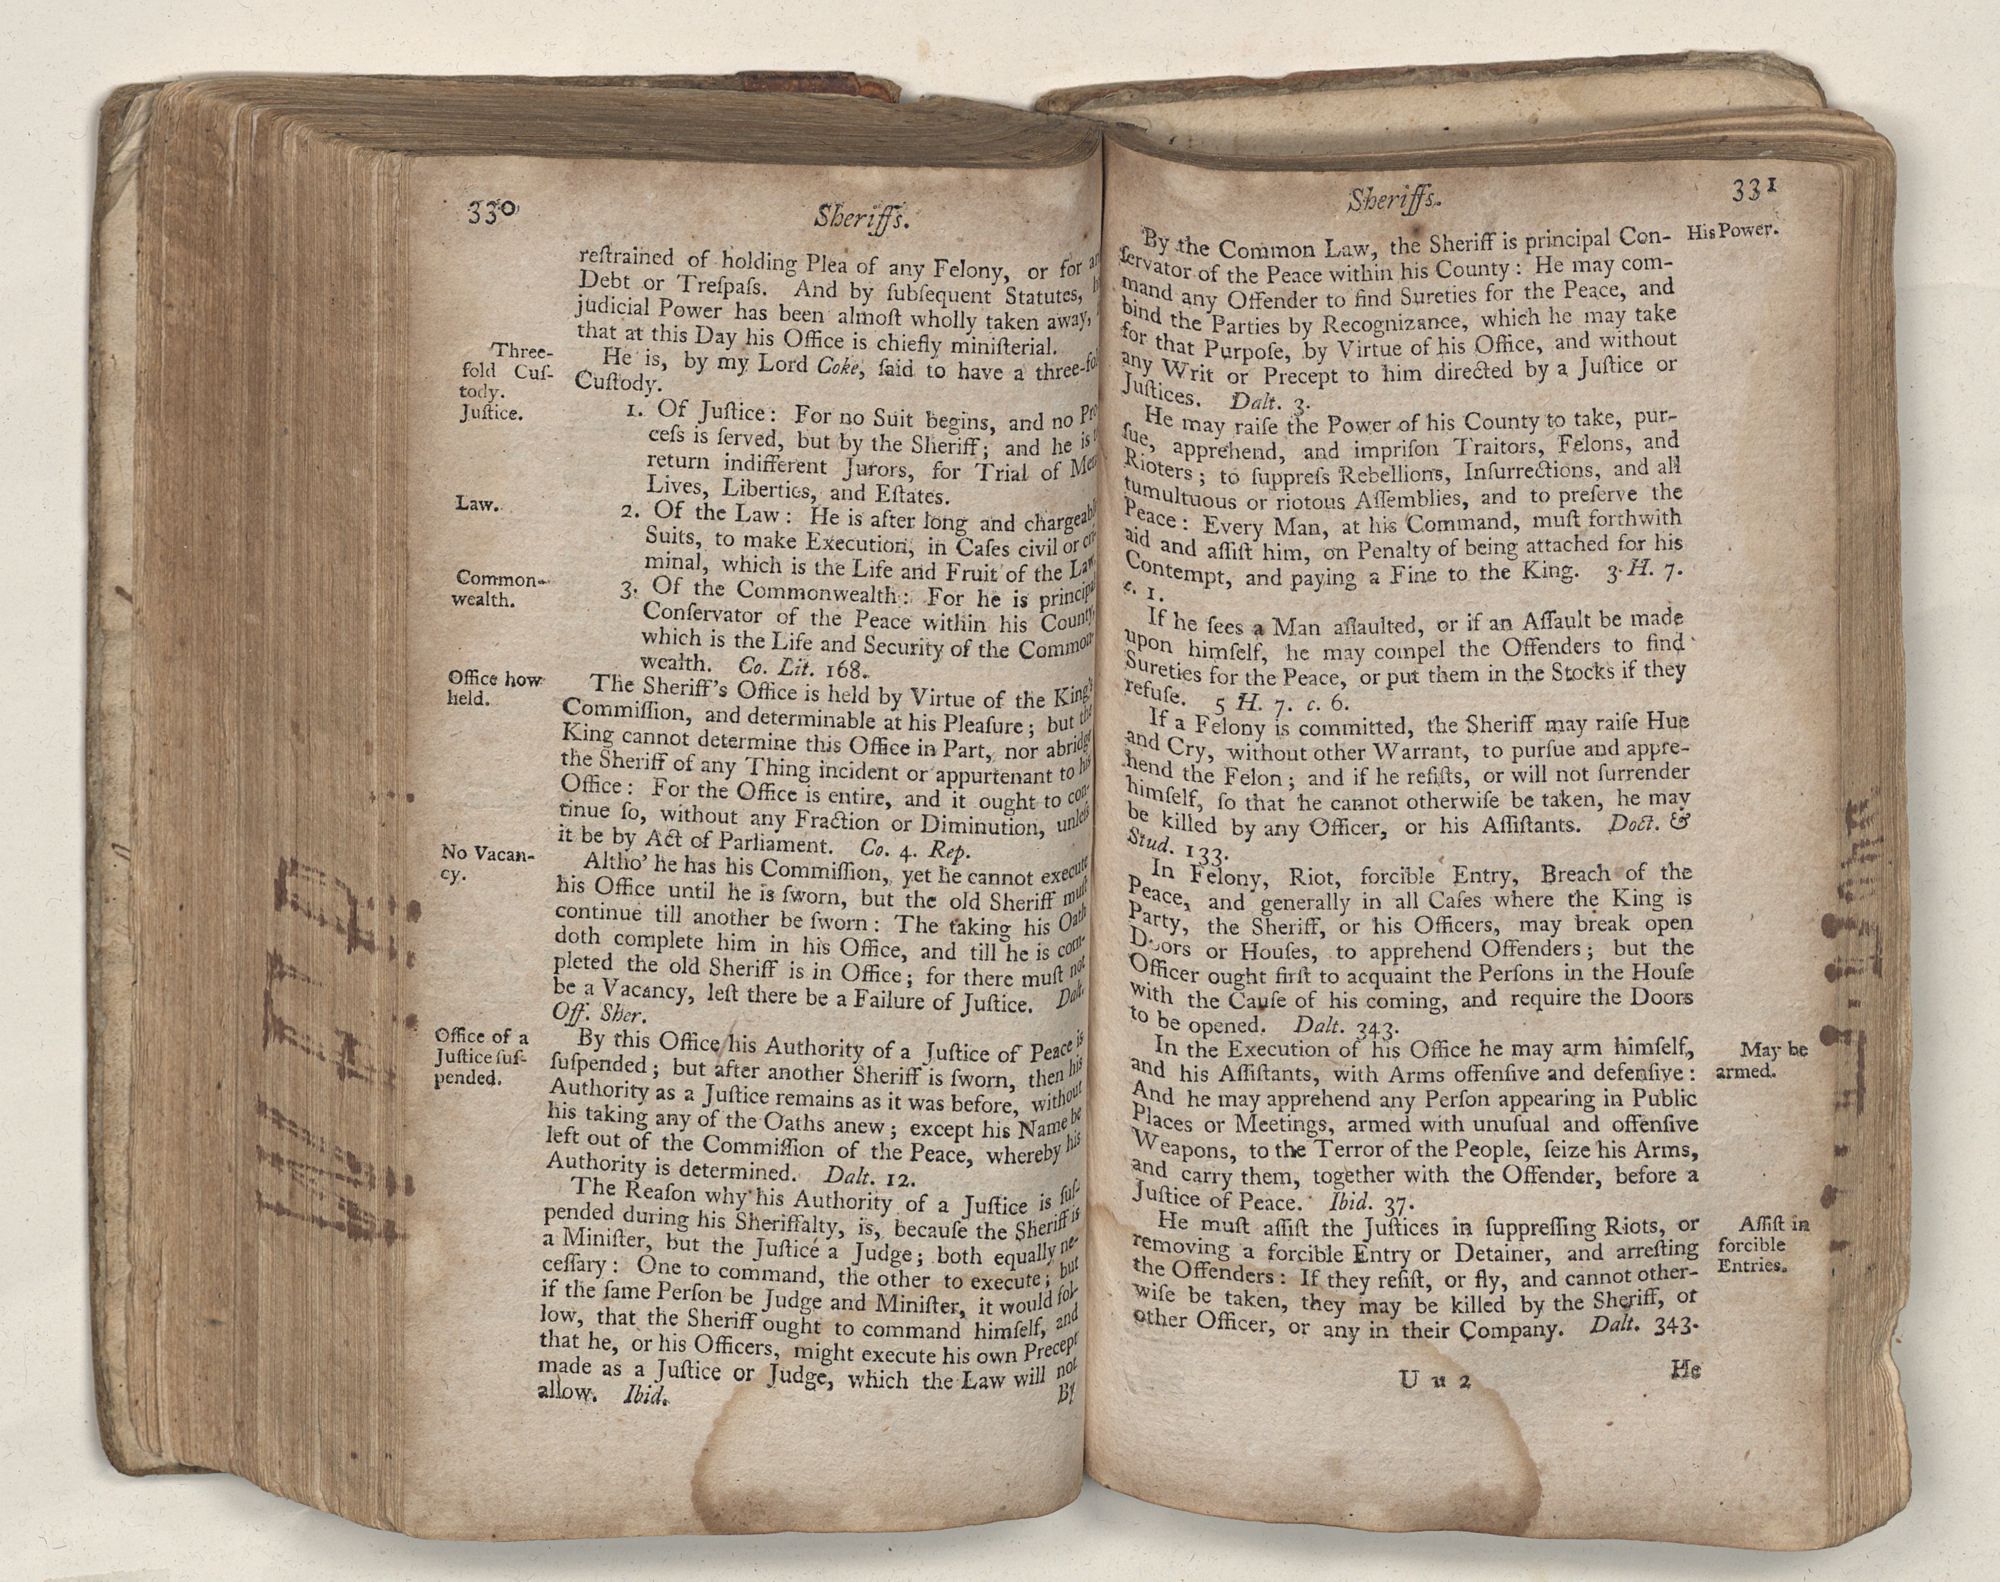 330
Sheriffs.
reſtrained of holding Plea of any Felony, or for
Debt or Treſpaſs. And by ſubſequent Statutes,
judicial Power has been almoſt wholly taken away,
that at this Day his Office is chiefly miniſterial.
Three-
fold Cuſ-
tody.
He is, by my Lord Coke, ſaid to have a three-fol
Cuſtody.
Juſtice.
1. Of Juſtice: For no Suit begins, and no Pro
ceſs is ſerved, but by the Sheriff; and he is
return indifferent Jurors, for Trial of Mens
Lives, Liberties, and Eſtates.
Law.
2. Of the Law: He is after long and chargeable
Suits, to make Execution, in Caſes civil or cri-
minal, which is the Life and Fruit of the Law.
Common-
wealth.
3. Of the Commonwealth: For he is principal
Conſervator of the Peace within his County,
which is the Life and Security of the Common-
wealth. Co. Lit. 168.
Office how
held.
The Sheriff's Office is held by Virtue of the King's
Commiſſion, and determinable at his Pleaſure; but the
King cannot determine this Office in Part, nor abridge
the Sheriff of any Thing incident or appurtenant to his
Office: For the Office is entire, and it ought to con-
tinue ſo, without any Fraction or Diminution, unleſs
it be by Act of Parliament. Co. 4. Rep.
No Vacan-
cy.
Altho' he has his Commiſſion, yet he cannot execute
his Office until he is ſworn, but the old Sheriff muſt
continue till another be ſworn: The taking his Oath
doth complete him in his Office, and till he is com-
pleted the old Sheriff is in Office; for there muſt not
be a Vacancy, leſt there be a Failure of Juſtice. Dalt.
Off. Sher.
Office of a
Juſtice ſuſ-
pended.
By this Office his Authority of a Juſtice of Peace is
ſuſpended; but after another Sheriff is ſworn, then his
Authority as a Juſtice remains as it was before, without
his taking any of the Oaths anew; except his Name be
left out of the Commiſſion of the Peace, whereby his
Authority is determined. Dalt. 12.
The Reaſon why his Authority of a Juſtice is ſuſ-
pended during his Sheriffalty, is, becauſe the Sheriff is
a Miniſter, but the Juſtice a Judge; both equally ne-
ceſſary: One to command, the other to execute; but
if the ſame Perſon be Judge and Miniſter, it would fol-
low, that the Sheriff ought to command himſelf, and
that he, or his Officers, might execute his own Precept
made as a Juſtice or Judge, which the Law will not
allow. Ibid.
By
Sheriffs.
331
His Power.
By the Common Law, the Sheriff is principal Con-
ſervator of the Peace within his County: He may com-
mand any Offender to find Sureties for the Peace, and
bind the Parties by Recognizance, which he may take
for that Purpoſe, by Virtue of his Office, and without
any Writ or Precept to him directed by a Juſtice or
Juſtices. Dalt. 3.
He may raiſe the Power of his County to take, pur-
ſue, apprehend, and impriſon Traitors, Felons, and
Rioters; to ſuppreſs Rebellions, Inſurrections, and all
tumultuous or riotous Aſſemblies, and to preſerve the
Peace: Every Man, at his Command, muſt forthwith
aid and aſſiſt him, on Penalty of being attached for his
Contempt, and paying a Fine to the King. 3. H. 7.
c. 1.
If he ſees a Man aſſaulted, or if an Aſſault be made
upon himſelf, he may compel the Offenders to find
Sureties for the Peace, or put them in the Stocks if they
refuſe. 5 H. 7. c. 6.
If a Felony is committed, the Sheriff may raiſe Hue
and Cry, without other Warrant, to purſue and appre-
hend the Felon; and if he reſiſts, or will not ſurrender
himſelf, ſo that he cannot otherwiſe be taken, he may
be killed by any Officer, or his Aſſiſtants. Doct. &
Stud. 133.
In Felony, Riot, forcible Entry, Breach of the
Peace, and generally in all Caſes where the King is
Party, the Sheriff, or his Officers, may break open
Doors or Houſes, to apprehend Offenders; but the
Officer ought firſt to acquaint the Perſons in the Houſe
with the Cauſe of his coming, and require the Doors
to be opened. Dalt. 343.
May be
armed.
In the Execution of his Office he may arm himſelf,
and his Aſſiſtants, with Arms offenſive and defenſive:
And he may apprehend any Perſon appearing in Public
Places or Meetings, armed with unuſual and offenſive
Weapons, to the Terror of the People, ſeize his Arms,
and carry them, together with the Offender, before a
Juſtice of Peace. Ibid. 37.
Aſſiſt in
forcible
Entries.
He muſt aſſiſt the Juſtices in ſuppreſſing Riots, or
removing a forcible Entry or Detainer, and arreſting
the Offenders: If they reſiſt, or fly, and cannot other-
wiſe be taken, they may be killed by the Sheriff, or
other Officer, or any in their Company. Dalt. 343.
U u 2
He